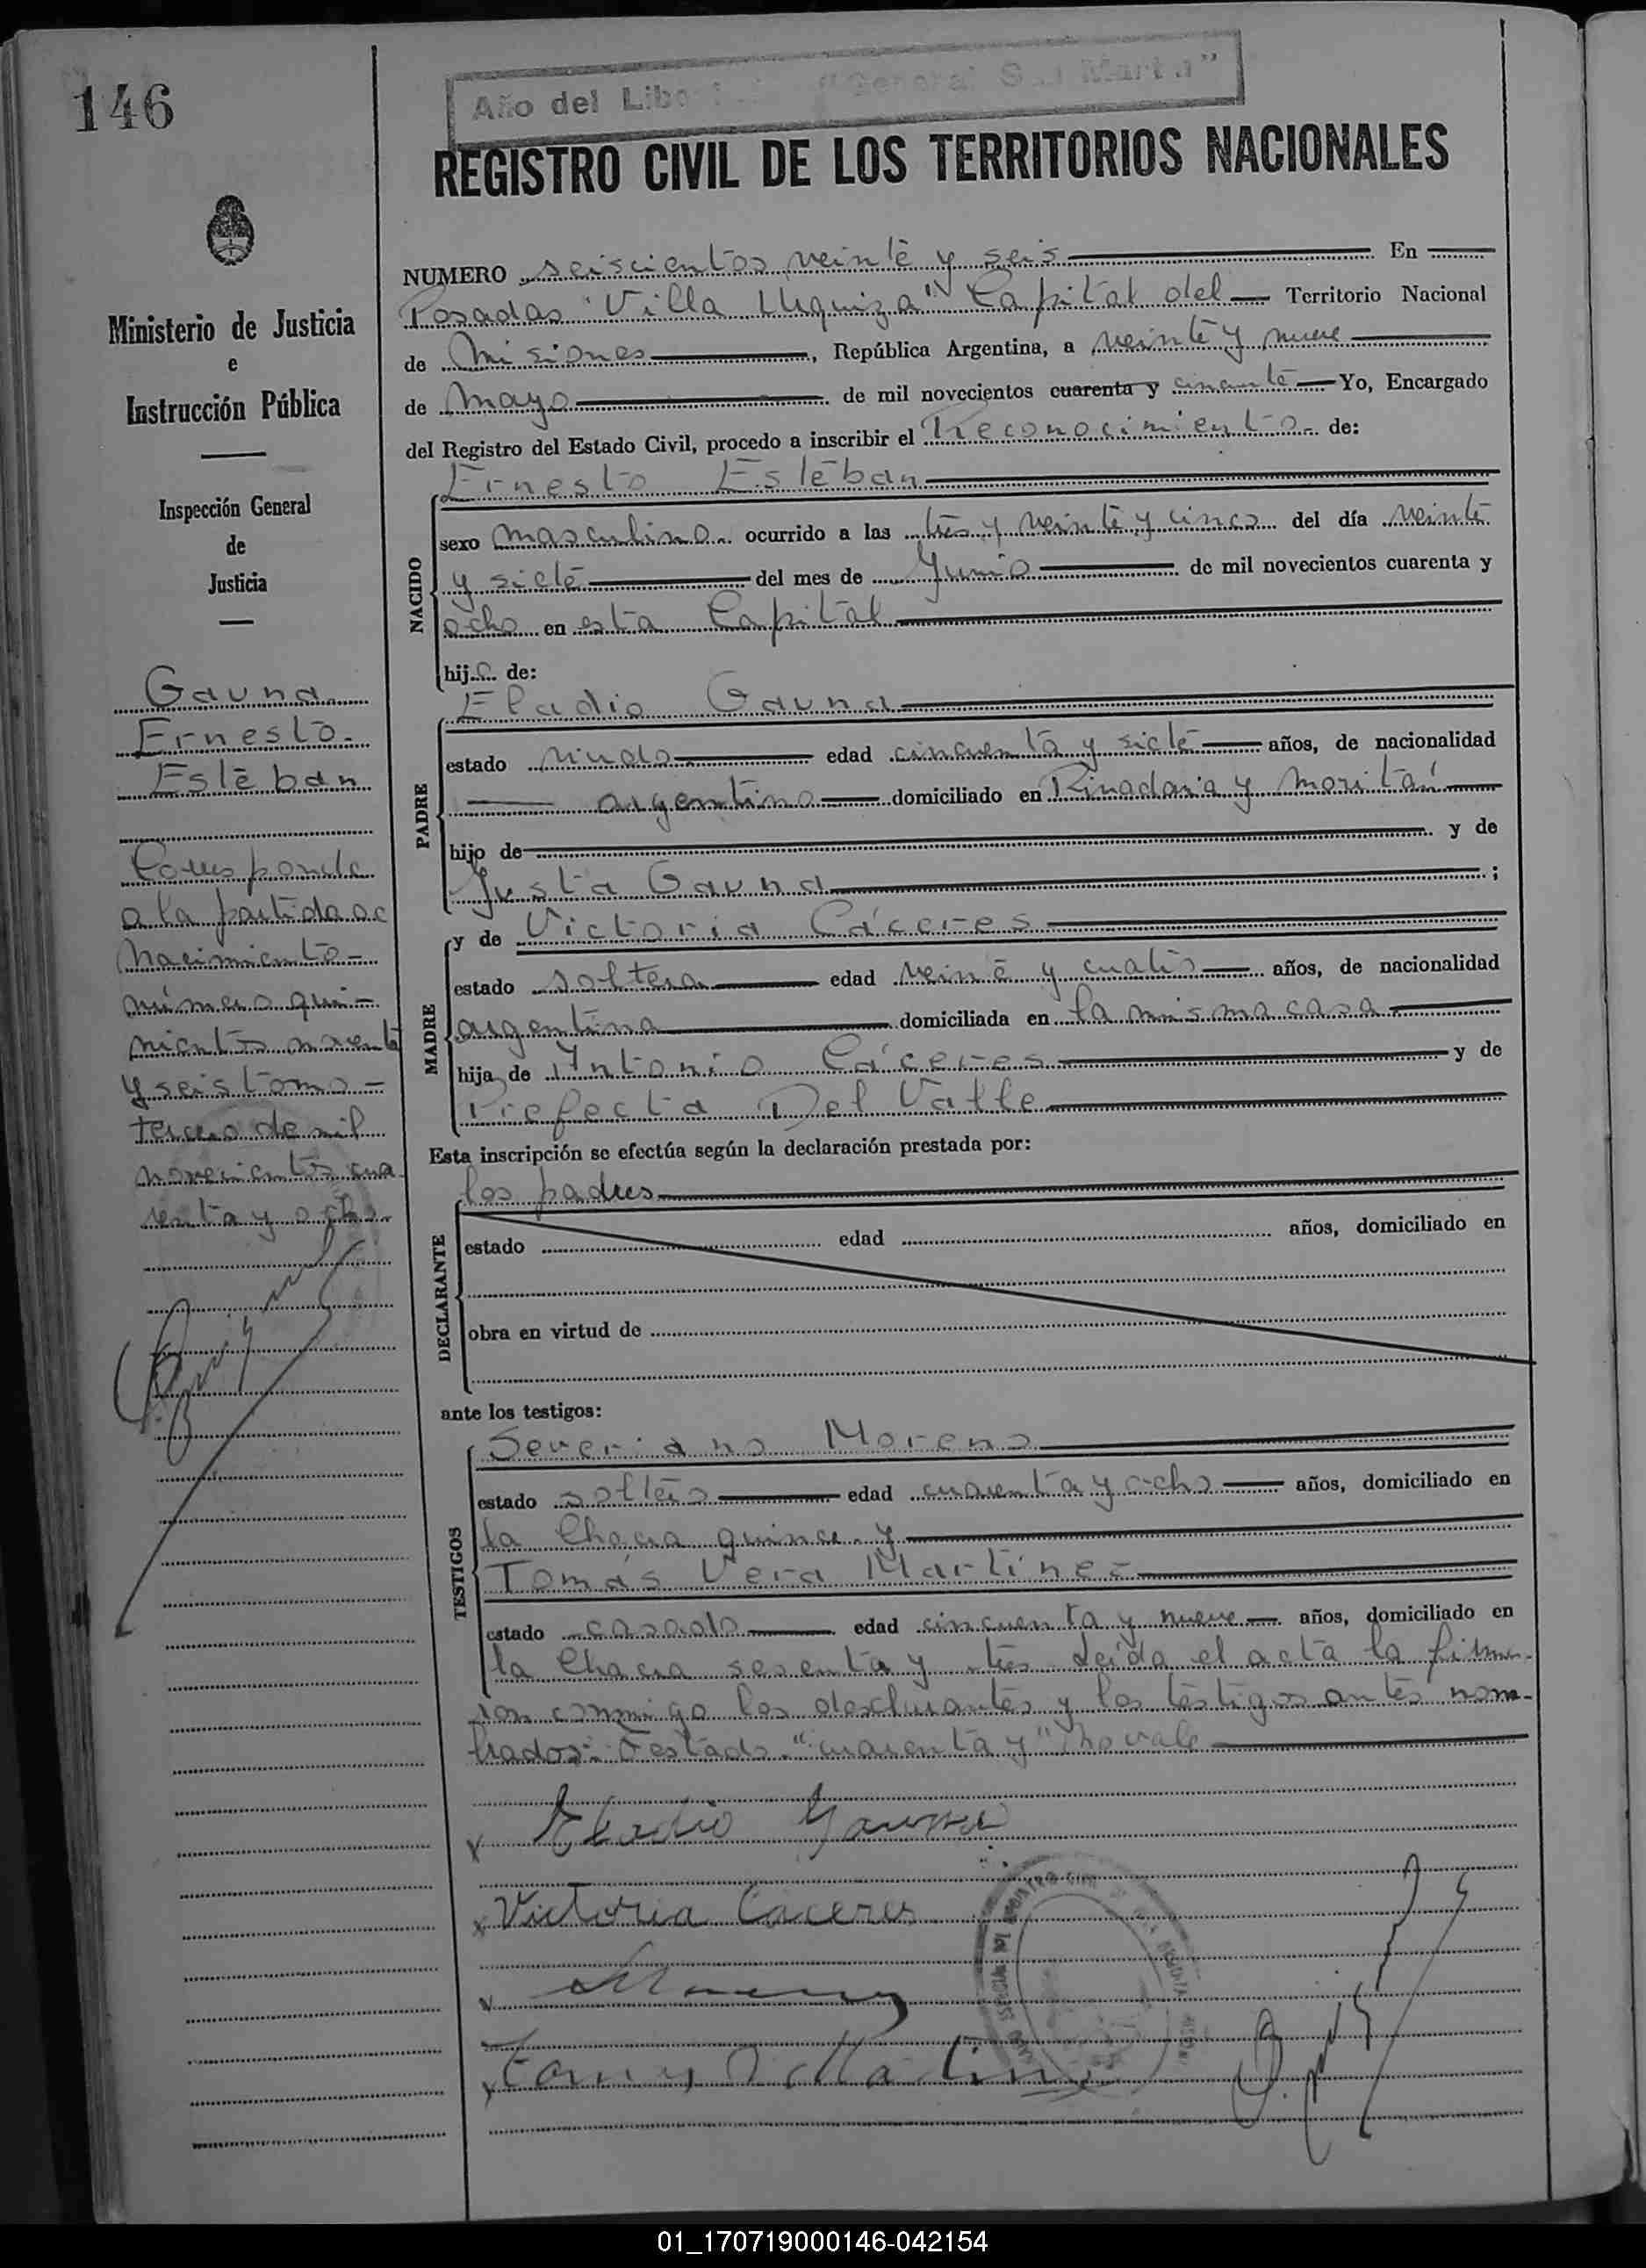 146
Año del Libe "General San Martín"
REGISTRO CIVIL DE LOS TERRITORIOS NACIONALES
Ministerio de Justicia
e
Instrucción Pública
Inspección General
de
Justicia
Gauna
Ernesto
Esteban
Corresponde
a la partida de
nacimiento
número qui-
nientos noventa
y seis tomo
tercero de mil
novecientos cua
renta y ocho.
NUMERO seiscientos veinte y seis En
Posadas "Villa Urquiza" Capital del Territorio Nacional
de Misiones, República Argentina, a veinte y nueve
de mayo de mil novecientos cuarenta y cincuenta Yo, Encargado
del Registro del Estado Civil, procedo a inscribir el Reconocimiento de:
NACIDO
Ernesto Esteban
sexo masculino ocurrido a las tres y veinte y cinco del día veinte
y siete del mes de Junio de mil novecientos cuarenta y
ocho en esta Capital
hijo de:
PADRE
Eladio Gauna
estado viudo edad cincuenta y siete años, de nacionalidad
argentino domiciliado en Rivadavia y
hijo de y de
Justa Gauna ;
MADRE
y de Victoria Cáceres
estado soltera edad veinte y cuatro años, de nacionalidad
argentina domiciliada en la misma casa
hija de Antonio Cáceres y de
Prefecta Del Valle
Esta inscripción se efectúa según la declaración prestada por:
DECLARANTE
los padres
estado edad años, domiciliado en
obra en virtud de
ante los testigos:
TESTIGOS
Severiano Moreno
estado soltero edad cuarenta y ocho años, domiciliado en
la Chacra quince y
Tomás Vera Martínez
estado casado edad cincuenta y nueve años, domiciliado en
la Chacra sesenta y tres Leída el acta la firma-
ron conmigo los declarantes y los testigos antes nom-
brados: Testado "cuarenta y" no vale
x Eladio Gauna
x Victoria Caceres
01_170719000146-042154